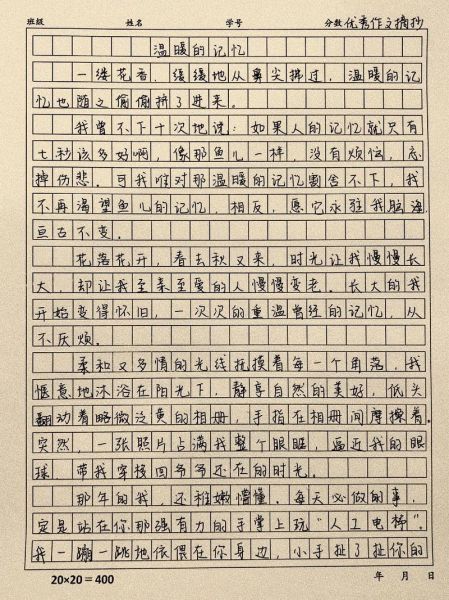 班级 姓名 学号 分数 优秀作文摘抄
温暖的记忆
一缕花香，缓缓地从鼻尖拂过，温暖的记
忆也随之偷偷挤了进来。
我曾不下十次地说：如果人的记忆就只有
七秒该多好啊，像那鱼儿一样，没有烦恼，忘
掉伤悲。可我唯对那温暖的记忆割舍不下，我
不再渴望鱼儿的记忆，相反，愿它永驻我脑海
亘古不变。
花落花开，春去秋又来，时光让我慢慢长
大，却让我至亲至爱的人慢慢变老。长大的我
开始变得怀旧，一次次的重温曾经的记忆，从
不厌烦。
柔和又多情的光线抚摸着每一个角落，我
惬意地沐浴在阳光下，静享自然的美好，低头
翻动着略微泛黄的相册，手指在相册间摩挲着。
突然，一张照片占满我整个眼眶，逼近我的眼
球，带我穿梭回爷爷还在的时光。
那年的我，还稚嫩懵懂。每天必做的事，
定是站在你那强有力的手掌上玩“人工电梯”。
我一蹦一跳地依偎在你身边，小手扯了扯你的
20×20=400 年 月 日